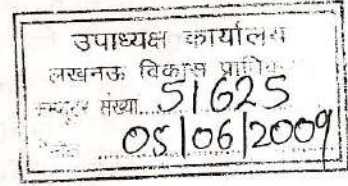 उपाध्यक्ष कार्यालय
लखनऊ विकास
संख्या 51625
05/06/2009